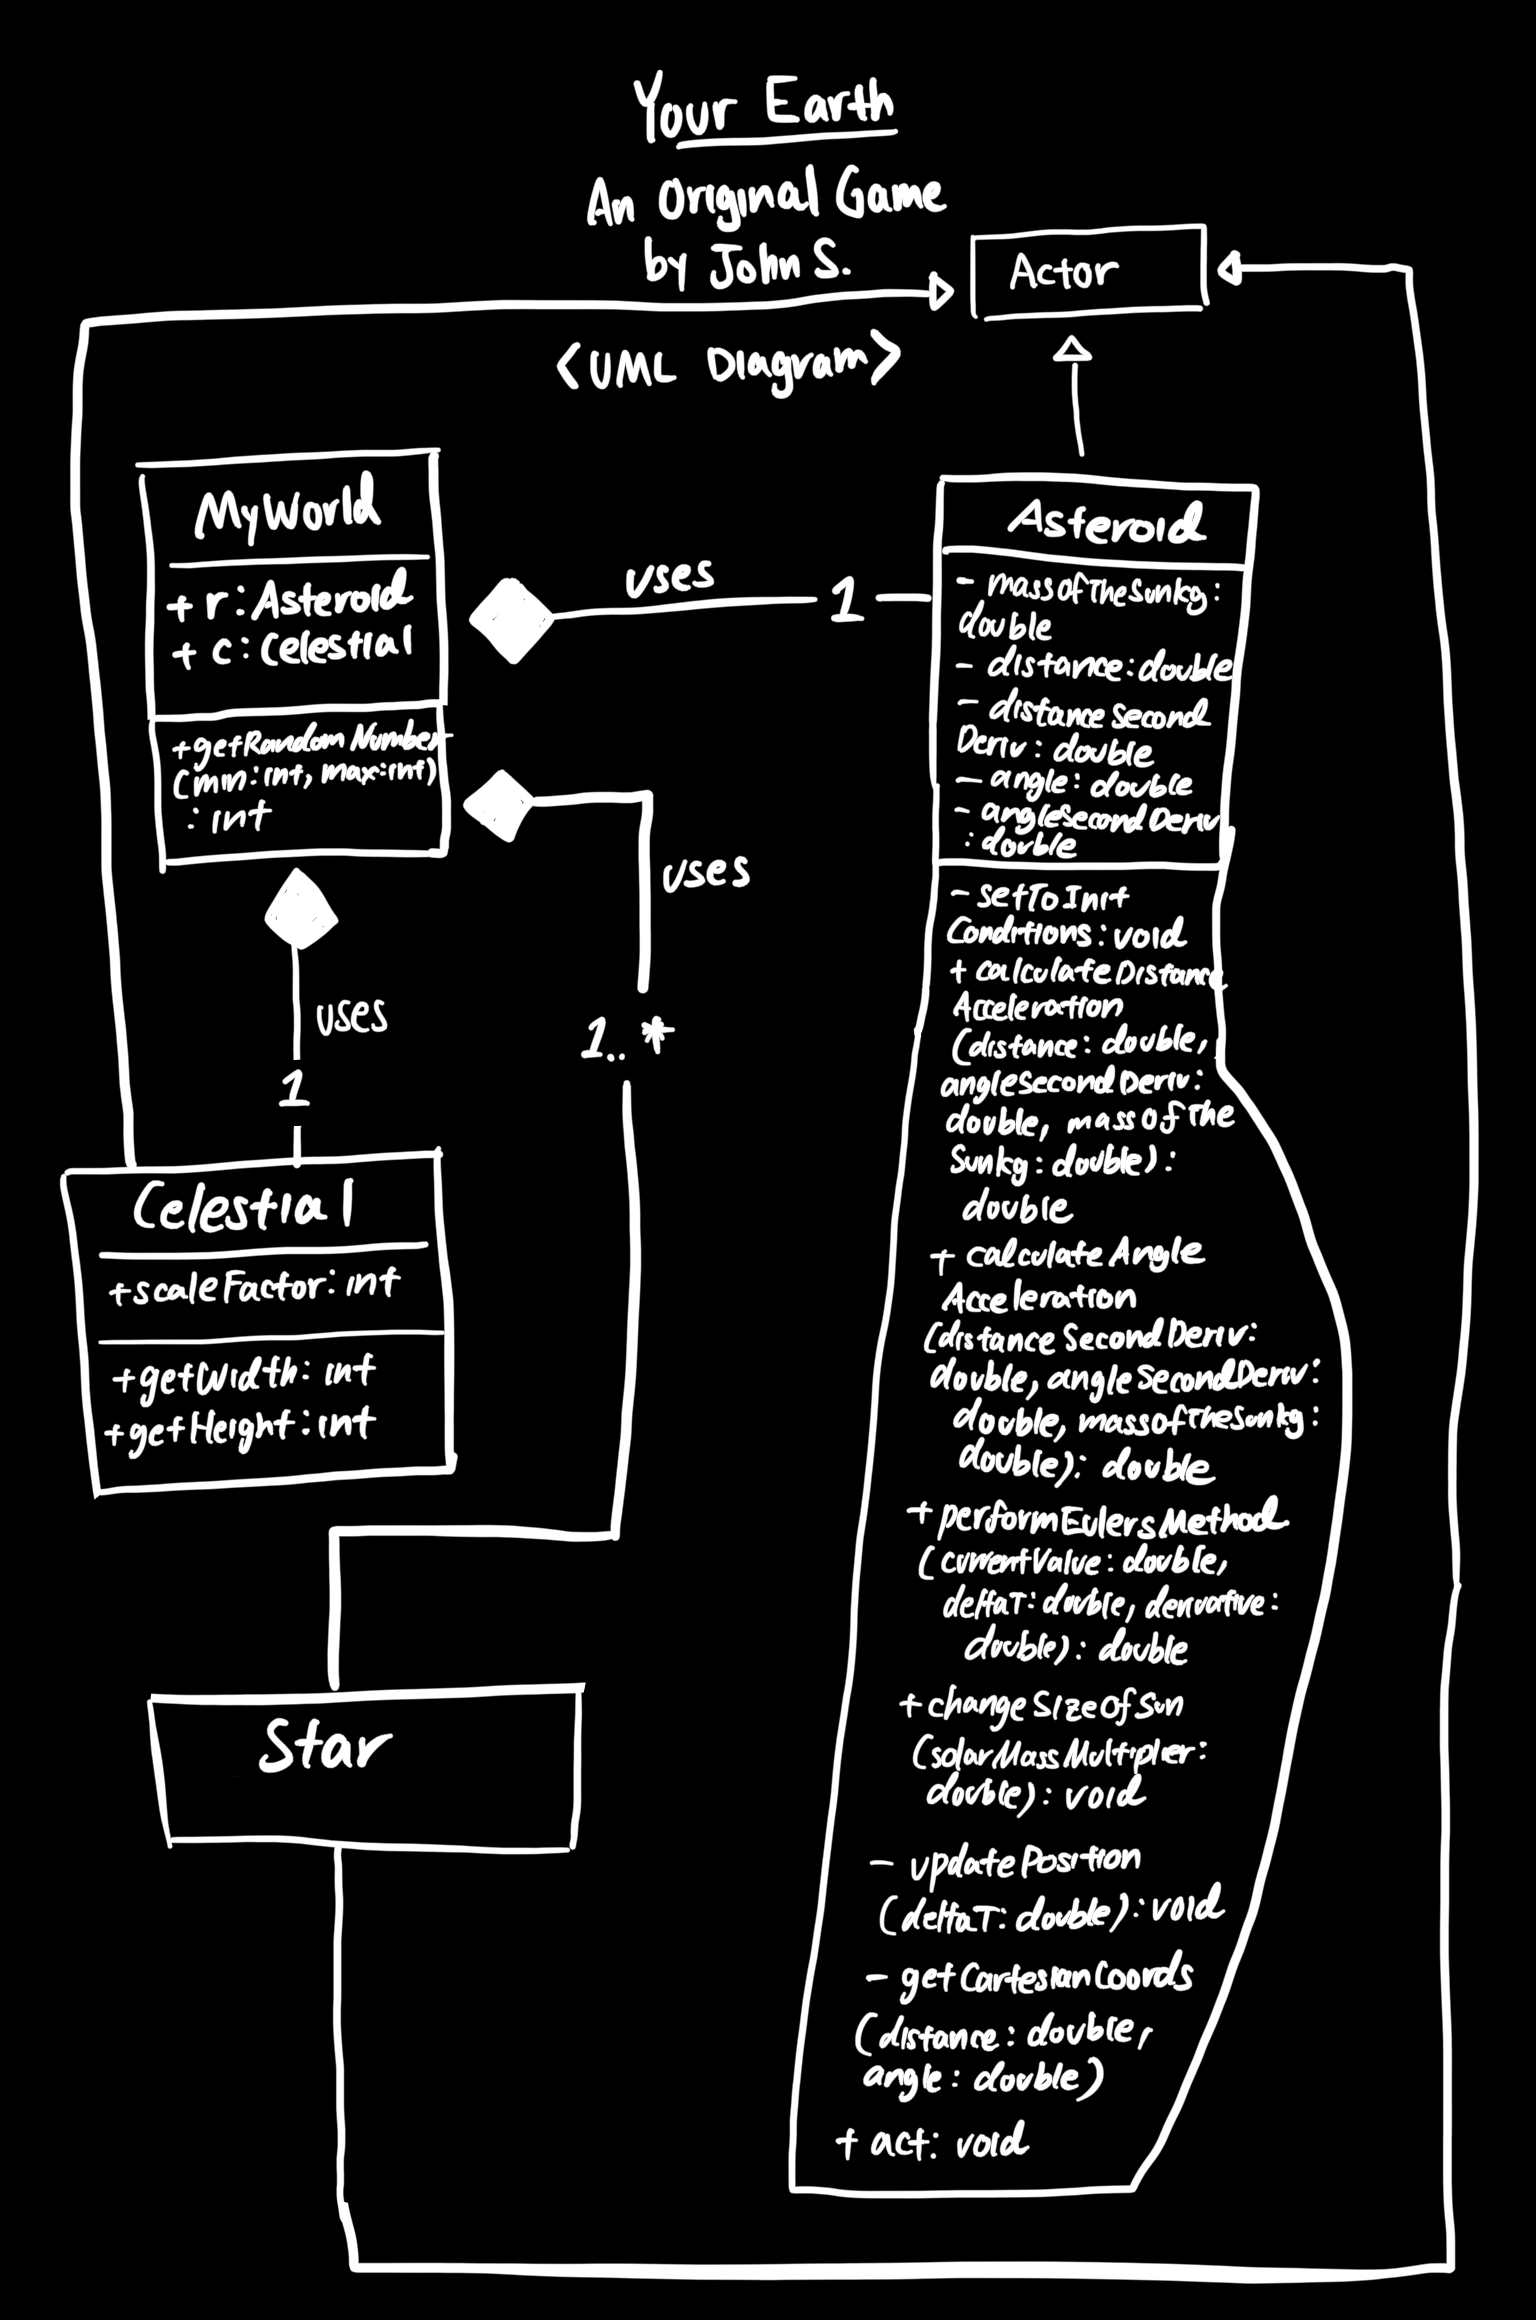 Your Earth
An Original Game
by John S.
<UML Diagram>
Actor
MyWorld
+ r: Asteroid
+ c: Celestial
+getRandomNumber
(min:int, max:int)
: int
uses
1
uses
1..*
uses
1
Asteroid
- massOfTheSunkg:
double
- distance: double
- distanceSecond
Deriv: double
- angle: double
- angleSecondDeriv
: double
- setToInit
Conditions: void
+ calculateDistance
Acceleration
(distance: double,
angleSecondDeriv:
double, massOfThe
Sunkg: double):
double
+ calculateAngle
Acceleration
(distanceSecondDeriv:
double, angleSecondDeriv:
double, massofTheSunkg:
double): double
+ performEulersMethod
(currentValue: double,
deltaT: double, derivative:
double): double
+ changeSizeOfSun
(solarMassMultiplier:
double): void
- updatePosition
(deltaT: double): void
- getCartesianCoords
(distance: double,
angle: double)
+ act: void
Celestial
+scaleFactor: int
+getWidth: int
+getHeight: int
Star